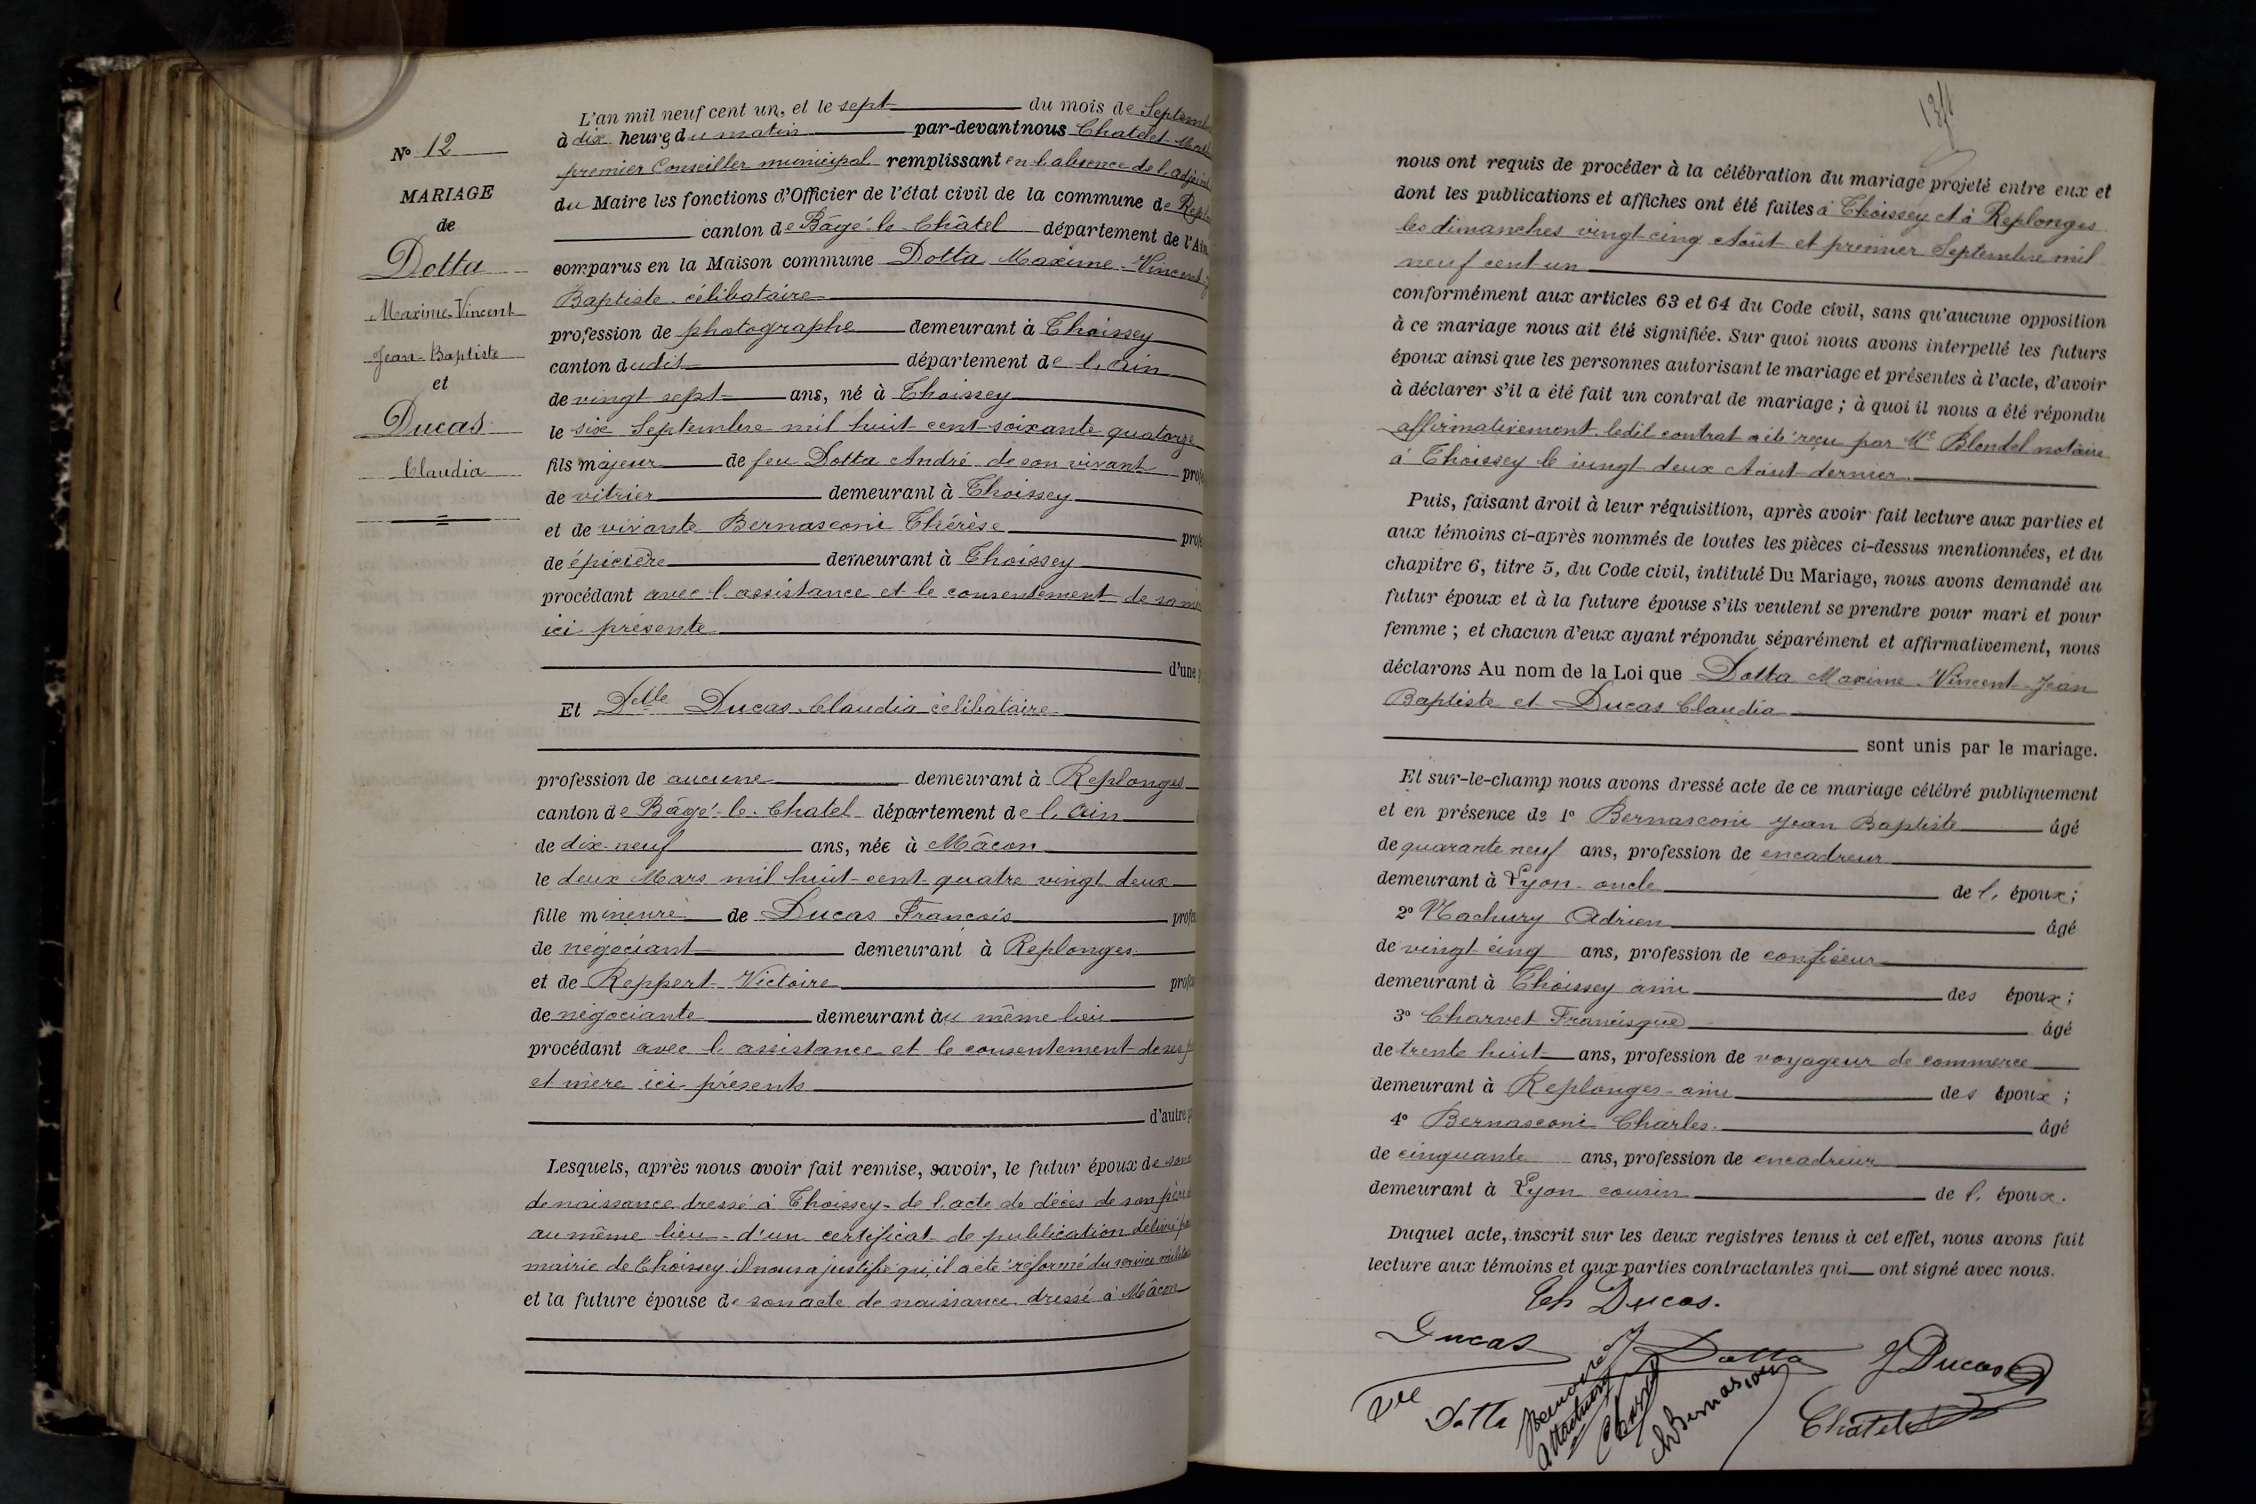 N° 12
MARIAGE
de
Dotta
Maxime Vincent
Jean-Baptiste
et
Ducas
Claudia
L'an mil neuf cent un, et le sept du mois de Septemb
à dix heures du matin par-devant nous Chatelet
premier Conseiller municipal remplissant en l'absence de l'adjoint
du Maire les fonctions d'Officier de l'état civil de la commune de Repl
canton de Bâgé-le-Châtel département de l'Ain
comparus en la Maison commune Dotta Maxime Vincent
Baptiste célibataire
profession de photographe demeurant à Thoissey
canton dudit département de l'Ain
de vingt sept ans, né à Thoissey
le six Septembre mil huit cent soixante quatorze
fils majeur de feu Dotta André de son vivant prof
de vitrier demeurant à Thoissey
et de vivante Bernasconi Thérèse prof
de épicière demeurant à Thoissey
procédant avec l'assistance et le consentement de sa mè
ici présente
d'une p
Et Delle Ducas Claudia célibataire
profession de aucune demeurant à Replonges
canton de Bâgé-le-Chatel département de l'Ain
de dix-neuf ans, née à Mâcon
le deux Mars mil huit cent quatre vingt deux
fille mineure de Ducas François profe
de négociant demeurant à Replonges
et de Reppert Victoire profe
de négociante demeurant au même lieu
procédant avec l'assistance et le consentement de ses p
et mère ici présents
d'autre p
Lesquels, après nous avoir fait remise, savoir, le futur époux de son
de naissance dressé à Thoissey - de l'acte de décès de son père
au même lieu - d'un certificat de publication délivré par
mairie de Thoissey il nous a justifié qu'il a été réformé du service milita
et la future épouse de son acte de naissance dressé à Mâcon
nous ont requis de procéder à la célébration du mariage projeté entre eux et
dont les publications et affiches ont été faites à Thoissey et à Replonges
les dimanches vingt-cinq Août et premier Septembre mil
neuf cent un
conformément aux articles 63 et 64 du Code civil, sans qu'aucune opposition
à ce mariage nous ait été signifiée. Sur quoi nous avons interpellé les futurs
époux ainsi que les personnes autorisant le mariage et présentes à l'acte, d'avoir
à déclarer s'il a été fait un contrat de mariage ; à quoi il nous a été répondu
affirmativement ledit contrat a été reçu par Me Blondel notaire
à Thoissey le vingt deux Août dernier.
Puis, faisant droit à leur réquisition, après avoir fait lecture aux parties et
aux témoins ci-après nommés de toutes les pièces ci-dessus mentionnées, et du
chapitre 6, titre 5, du Code civil, intitulé Du Mariage, nous avons demandé au
futur époux et à la future épouse s'ils veulent se prendre pour mari et pour
femme ; et chacun d'eux ayant répondu séparément et affirmativement, nous
déclarons Au nom de la Loi que Dotta Maxime Vincent Jean
Baptiste et Ducas Claudia
sont unis par le mariage.
Et sur-le-champ nous avons dressé acte de ce mariage célébré publiquement
et en présence de 1° Bernasconi Jean Baptiste âgé
de quarante neuf ans, profession de encadreur
demeurant à Lyon oncle de l'époux ;
2° Machury Adrien âgé
de vingt cinq ans, profession de confiseur
demeurant à Thoissey ami des époux ;
3° Charvet Francisque âgé
de trente huit ans, profession de voyageur de commerce
demeurant à Replonges ami des époux ;
4° Bernasconi Charles âgé
de cinquante ans, profession de encadreur
demeurant à Lyon cousin de l'époux.
Duquel acte, inscrit sur les deux registres tenus à cet effet, nous avons fait
lecture aux témoins et aux parties contractantes qui ont signé avec nous.
Ch Ducas.
Ducas
Dotta
J Ducas
Vve Dotta
Charvet
Ch Bernasconi
Chatelet